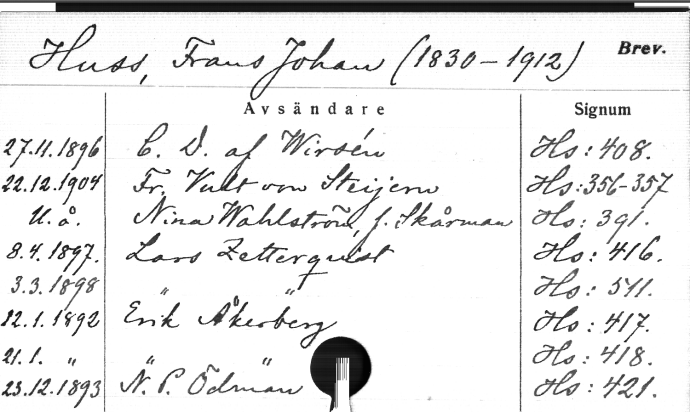 Huss, Frans Johan (1830-1912) Brev.
Avsändare Signum
27.11.1896 C. D. af Wirsén Hs: 408.
22.12.1904 Fr. Vult von Steijern Hs: 356-357
U. å. Nina Wahlström, f. Skårman Hs: 391.
8.4.1897. Lars Zetterquist Hs: 416.
3.3.1898 " " Hs: 511.
12.1.1892 Erik Åkerberg Hs: 417.
21.1. " " " Hs: 418.
23.12.1893 N. P. Ödman Hs: 421.